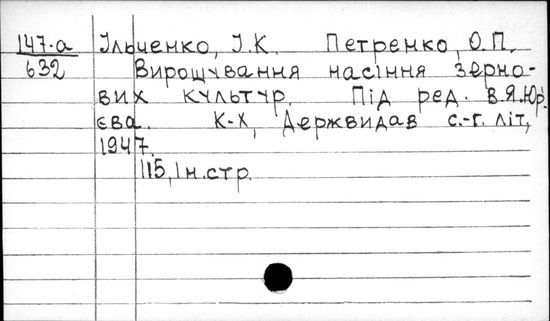 147-а Ільченко, І.К. Петренко, О.П.
632 Вирощування насіння зерно-
вих культур. Під ред. В.Я.Юр'
єва. К-Х, Держвидав с.-г. літ,
1947.
115, 1 н.стр.